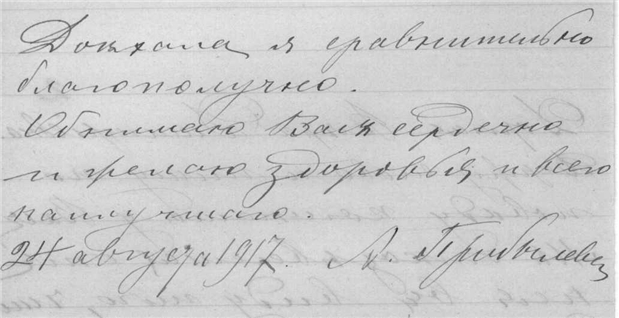 Доѣхала я сравнительно
благополучно.
Обнимаю Васъ сердечно
и желаю здоровья и всего
наилучшаго.
24 августа 1917. А. Прибылева